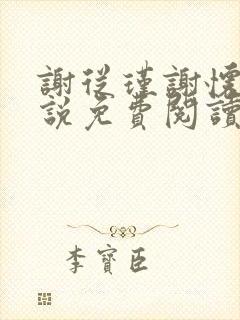 謝從瑾謝懷
說免費閱讀
李寶臣